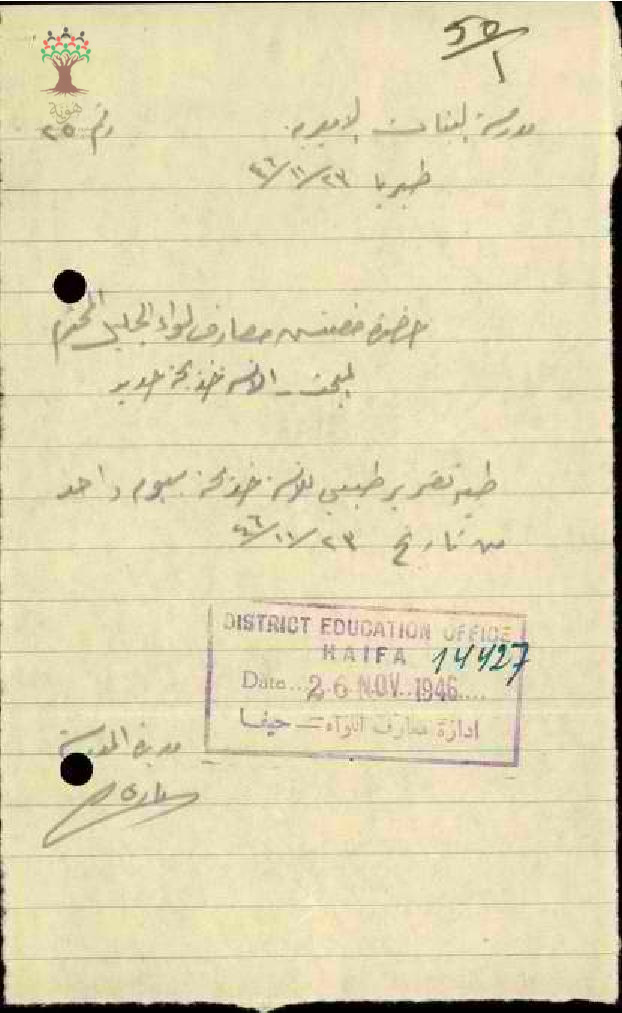 50/1
هوية
مدرسة البنات الاميرية
رقم ٢٥
طبريا ٢٣/١١/٤٦
حضرة مفتش معارف لواء الجليل المحترم
المبحث - الانسة خديجة
طيه تقرير طبي للانسة خديجة بيوم واحد
من تاريخ ٢٣/١١/٤٦
DISTRICT EDUCATION OFFICE
HAIFA 14427
Date... 26 NOV. 1946....
ادارة معارف اللواء — حيفا
مديرة المدرسة